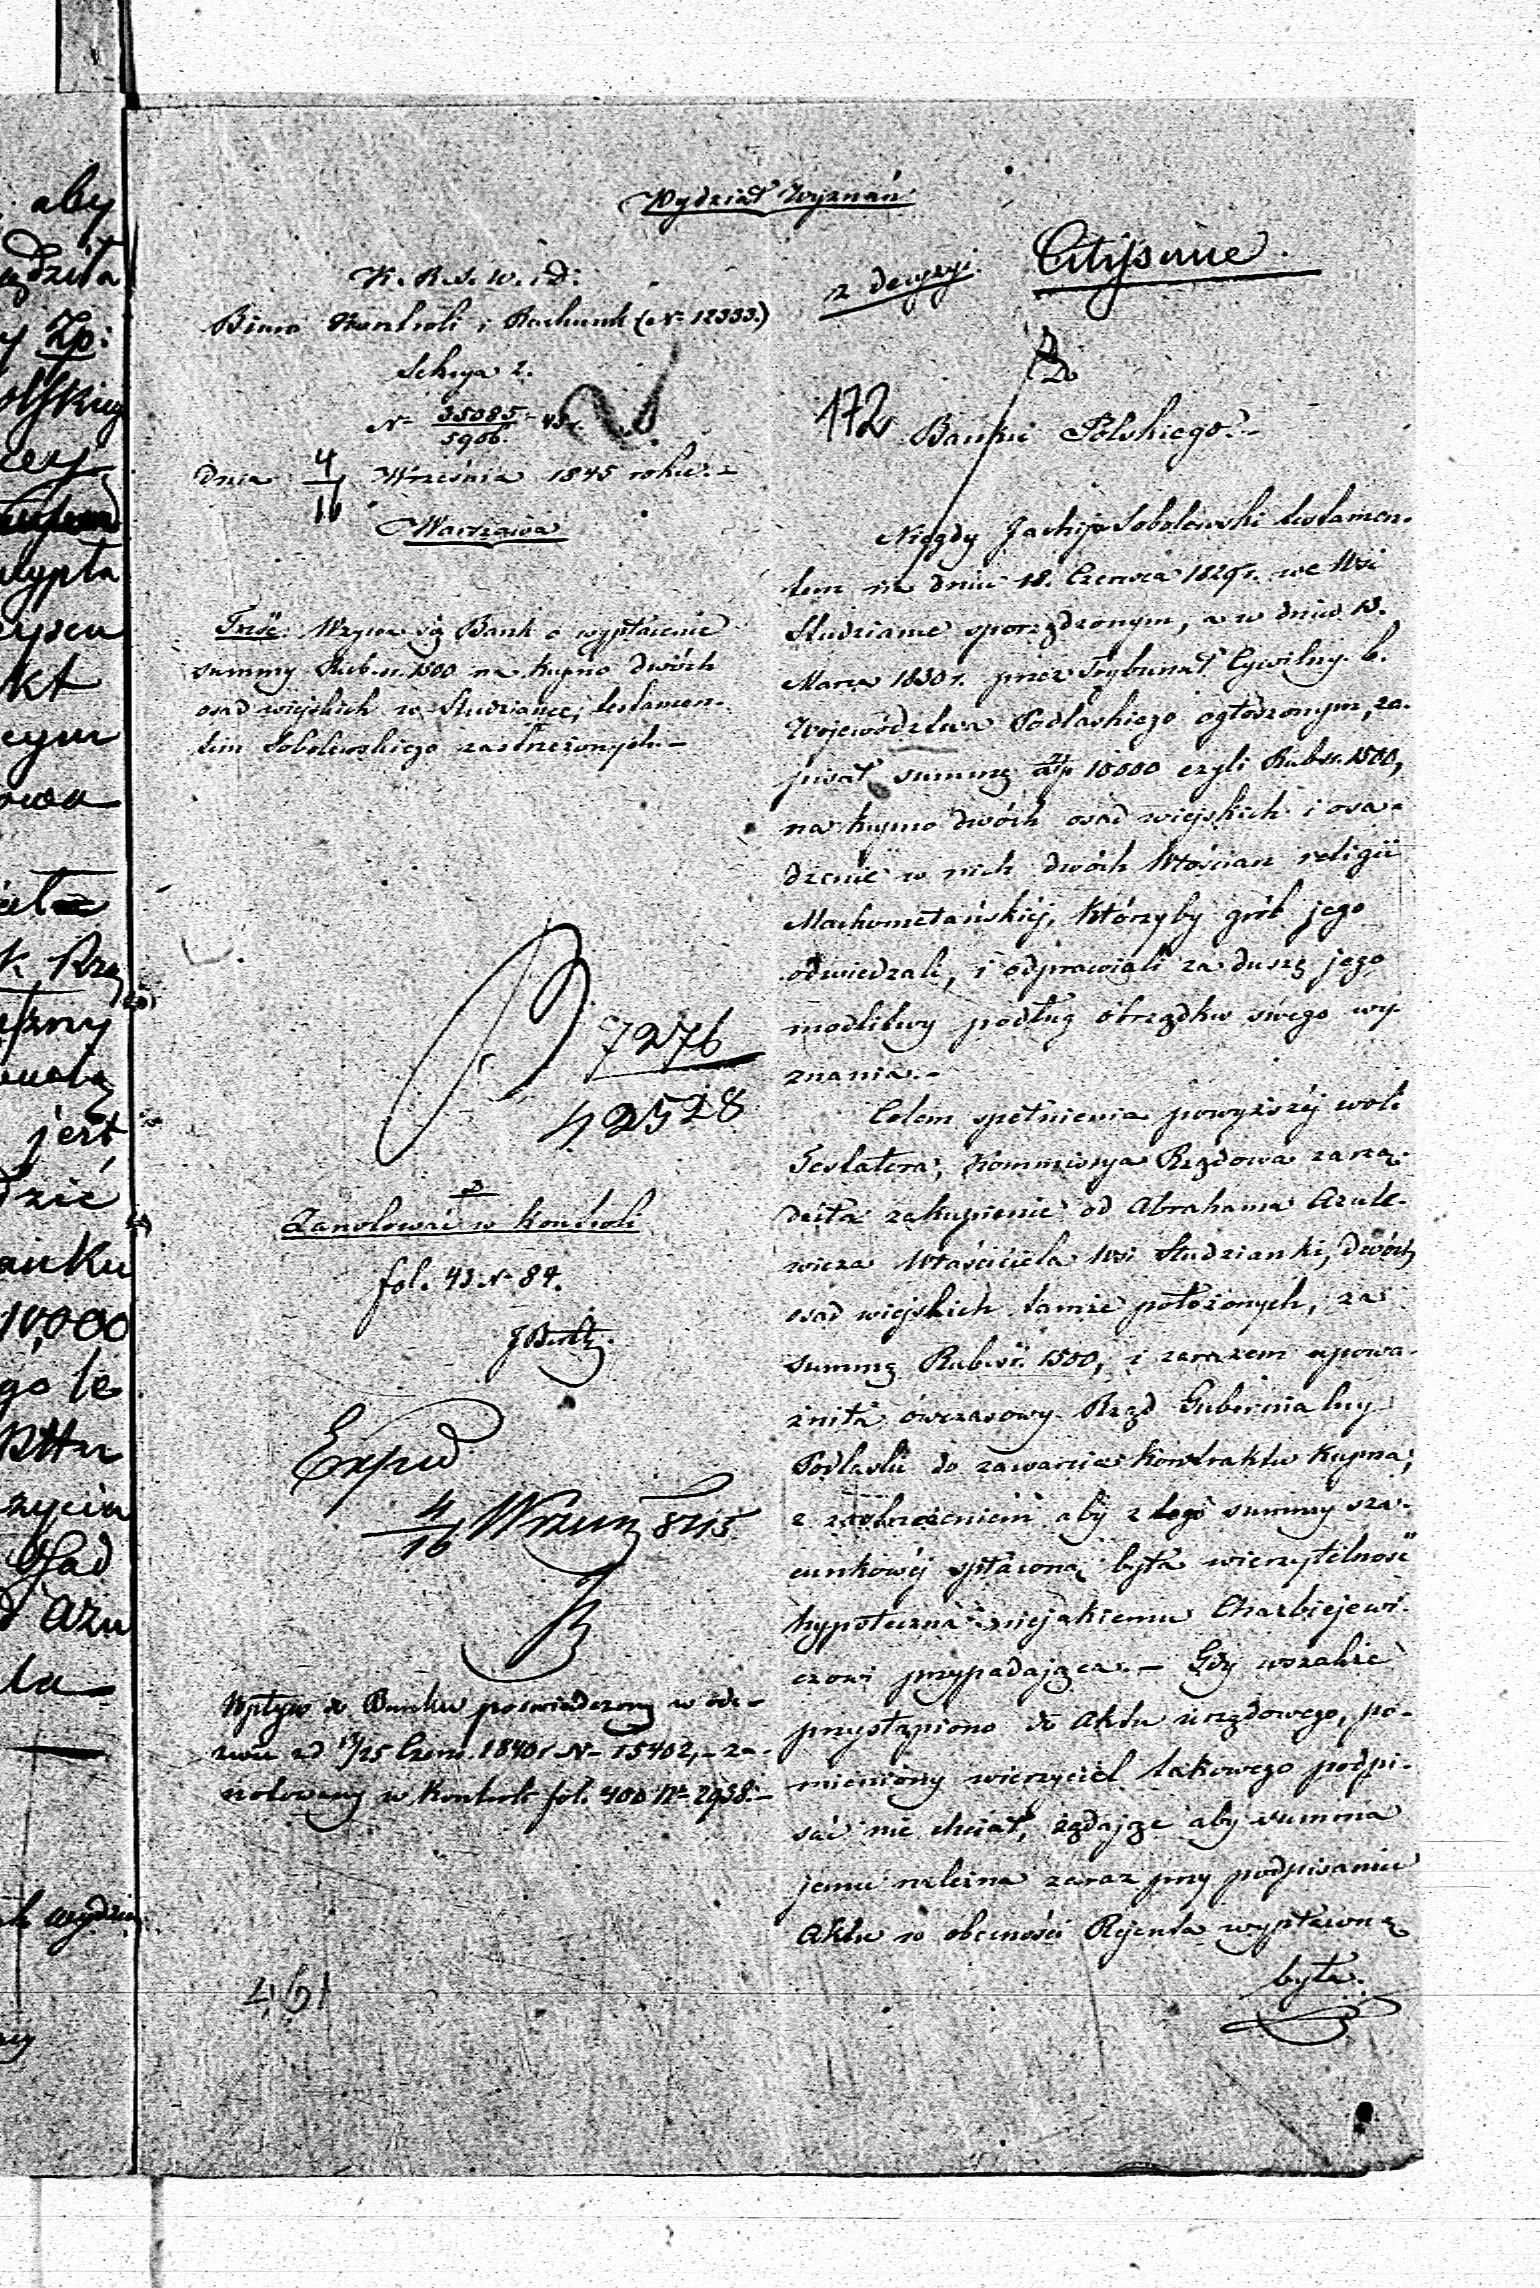 Wydział Wyznań
K. R. S. W. i D:
Biuro Kontroli i Rachunk (N° 12333.)
Sekcya 2.
N° 35085/5906. - 45r.
dnia 4/16 Września 1845 roku. -
Warszawa
Treść: Wzywa się Bank o wypłacenie
summy Rub. sr. 1500 na kupno dwóch
osad wiejskich w Studziance, testamen-
tem Sobolewskiego zastrzeżonych. -
7276
42528
Zanotować w Kontroli
fol. 43 N° 84.
Exped
4/16 Wrześn 845
Wpływ do Banku poświadczony w ode-
zwie z d 13/25 Czerw. 1840 r N° 15402, - za-
notowany w Kontroli fol. 400 N° 2938. -
z decyzyi
172
Banku Polskiego. -
Niegdy Jachija Sobolewski testamen-
tem na dniu 18. Czerwca 1829 r. we Wsi
Studziance sporządzonym, a w dniu 13.
Marca 1830 r. przez Trybunał Cywilny b.
Województwa Podlaskiego ogłoszonym, za-
pisał summę złp 10000 czyli Rub. sr. 1500,
na kupno dwóch osad wiejskich i osa-
dzenie w nich dwóch Włościan religii
Machometańskiéj, którzyby grób jego
odwiedzali, i odprawiali za duszę jego
modlitwy podług obrządku swego wy-
znania. -
Celem spełnienia powyższéj woli
Testatora, Kommissya Rządowa zarzą-
dziła zakupienie od Abrahama Azule-
wicza Właściciela Wsi Studzianki, dwóch
osad wiejskich tamże położonych, za
summę Rub. sr. 1500, i zarazem upowa-
żniła ówczasowy Rząd Gubernialny
Podlaski do zawarcia Kontraktu Kupna,
z zastrzeżeniem aby z tego summy sza-
cunkowéj spłaconą była wierzytelność
hypoteczna niejakiemu Charbiejewi-
czowi przypadająca. - Gdy wszakże
przystąpiono do Aktu urzędowego, po-
mieniony wierzyciel takowego podpi-
sać nie chciał, żądając aby summa
jemu należna zaraz przy podpisaniu
Aktu w obecności Rejenta wypłaconą
była.